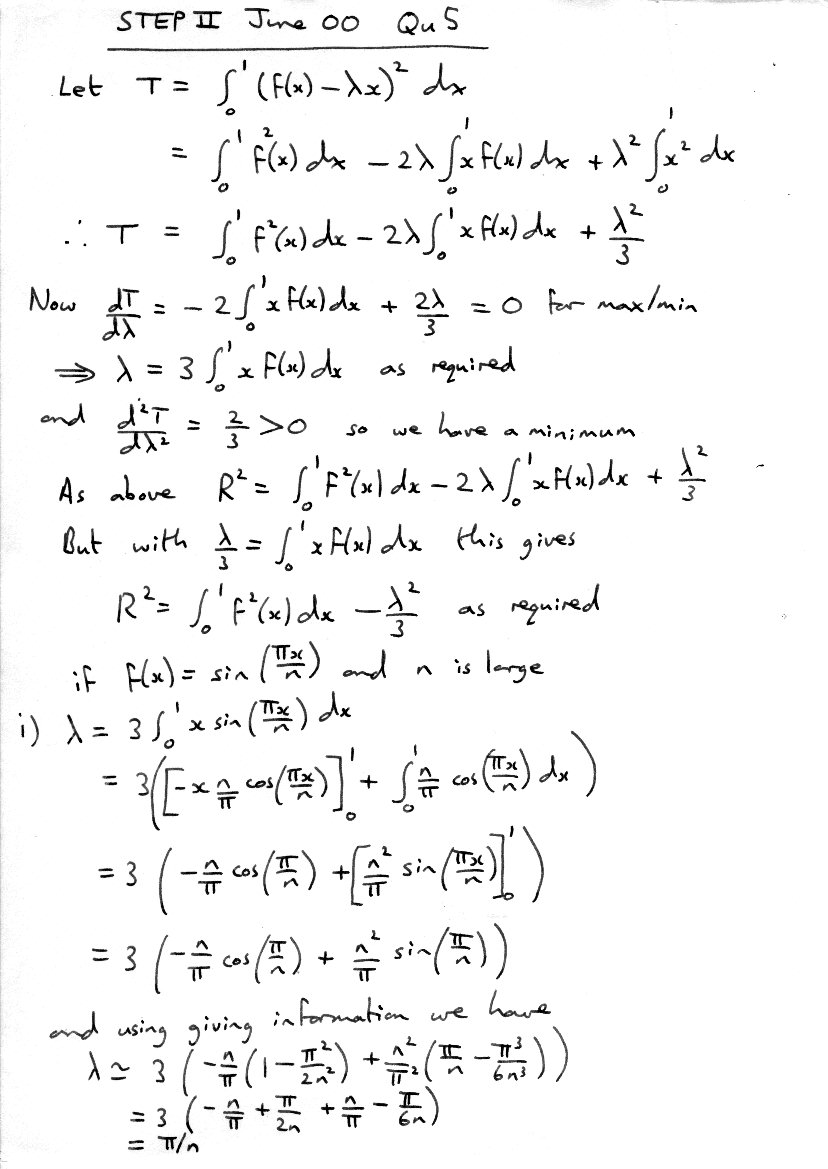 STEP II June 00 Qu 5
Let T = ∫₀¹ (f(x) − λx)² dx
= ∫₀¹ f²(x) dx − 2λ ∫₀¹ x f(x) dx + λ² ∫₀¹ x² dx
∴ T = ∫₀¹ f²(x) dx − 2λ ∫₀¹ x f(x) dx + λ²/3
Now dT/dλ = − 2 ∫₀¹ x f(x) dx + 2λ/3 = 0 for max/min
⇒ λ = 3 ∫₀¹ x f(x) dx as required
and d²T/dλ² = 2/3 > 0 so we have a minimum
As above R² = ∫₀¹ f²(x) dx − 2λ ∫₀¹ x f(x) dx + λ²/3
But with λ/3 = ∫₀¹ x f(x) dx this gives
R² = ∫₀¹ f²(x) dx − λ²/3 as required
if f(x) = sin (πx/n) and n is large
i) λ = 3 ∫₀¹ x sin (πx/n) dx
= 3([−x n/π cos(πx/n)]₀¹ + ∫₀¹ n/π cos(πx/n) dx)
= 3 (−n/π cos(π/n) + [n²/π sin(πx/n)]₀¹)
= 3 (−n/π cos(π/n) + n²/π sin(π/n))
and using giving information we have
λ ≃ 3 (−n/π (1 − π²/2n²) + n²/π² (π/n − π³/6n³))
= 3 (−n/π + π/2n + n/π − π/6n)
= π/n